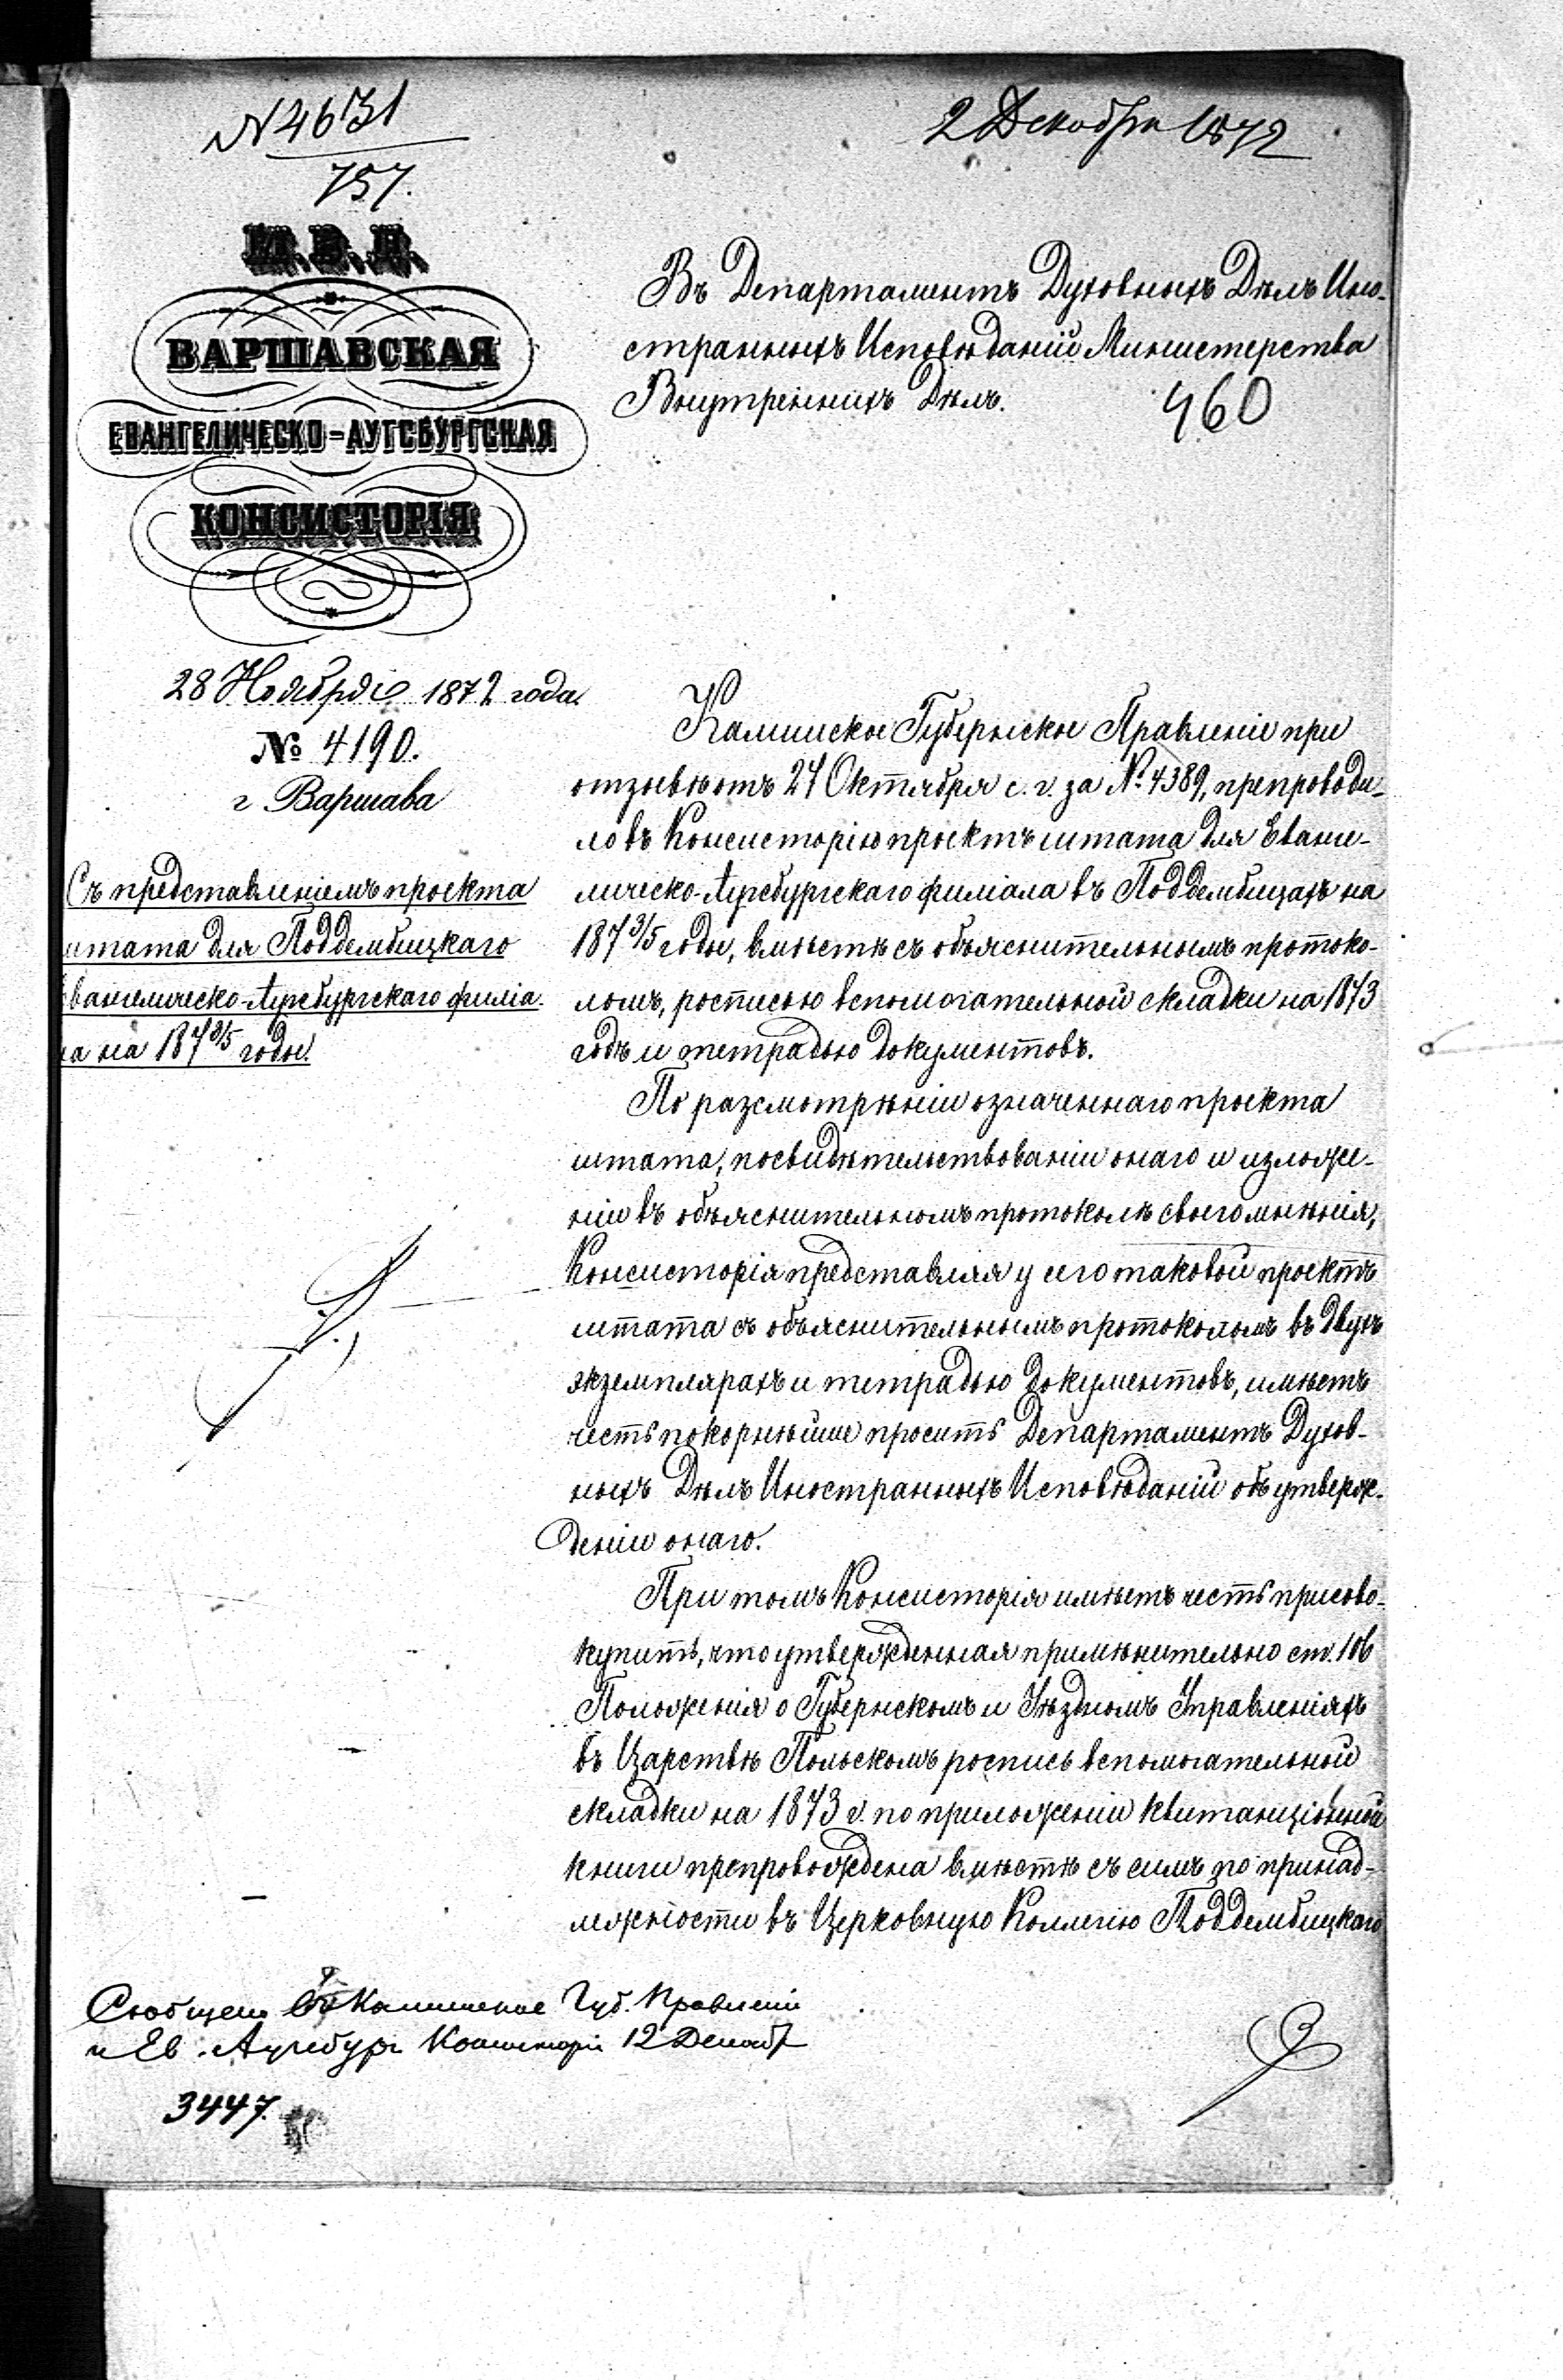 № 4631
757.
2 Декабря 1872
М.В.Д.
ВАРШАВСКАЯ
ЕВАНГЕЛИЧЕСКО-АУГСБУРГСКАЯ
КОНСИСТОРІЯ
28 Ноября 1872 года.
№ 4190.
г. Варшава
Съ представленіемъ проекта
штата для Поддембицкаго
Евангелическо-Аугсбургскаго филіа-
ла на 187 3/5 годы.
Въ Департаментъ Духовныхъ Дѣлъ Ино-
странныхъ Исповѣданій Министерства
Внутреннихъ Дѣлъ.
460
Калишское Губернское Правленіе при
отзывѣ отъ 27 Октября с. г. за № 4389, препроводи-
ло въ Консисторію проектъ штата для Еванге-
лическо-Аугсбургскаго филіала въ Поддембицахъ на
187 3/5 годы, вмѣстѣ съ объяснительнымъ протоко-
ломъ, росписью вспомогательной складки на 1873
годъ и тетрадью документовъ.
По разсмотрѣніи означеннаго проекта
штата, посвидѣтельствованіи онаго и изложе-
ніи въ объяснительномъ протоколѣ своего мнѣнія,
Консисторія представляя у сего таковой проектъ
штата съ объяснительнымъ протоколомъ въ двухъ
экземплярахъ и тетрадью документовъ, имѣетъ
честь покорнѣйше просить Департаментъ Духов-
ныхъ Дѣлъ Иностранныхъ Исповѣданій объ утверж-
деніи онаго.
При томъ Консисторія имѣетъ честь присово-
купить, что утвержденная примѣнительно ст. 106
Положенія о Губернскомъ и Уѣздномъ Управленіяхъ
въ Царствѣ Польскомъ роспись вспомогательной
складки на 1873 г. по приложеніи квитанціонной
книги препровождена вмѣстѣ съ симъ по принад-
лежности въ Церковную Коллегію Поддембицкаго
Сообщено въ Калишское Губ. Правленіе
и Ев. Аугсбург. Консисторіи 12 Декаб.
3447.